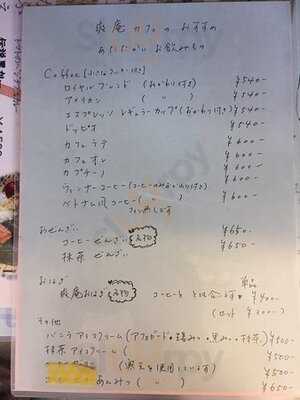 庵 カフェの おすすめ
あたたかい お飲みもの
Coffee
ロイヤルブレンド (おかわり付き) ¥540-
アメリカン ( 〃 ) ¥540-
エスプレッソ レギュラーカップ(おかわり付き) ¥540-
ドッピオ ¥540-
カフェラテ ¥600-
カフェオレ ¥600-
カプチーノ ¥600-
ウィンナーコーヒー(コーヒーのみおかわり付き) ¥600-
ベトナム風コーヒー ( 〃 ) ¥600-
おぜんざい ¥650-
コーヒーぜんざい 名物 ¥650-
抹茶 ぜんざい
おはぎ 単品
庵おはぎ 名物 コーヒーと とも合います♥ ¥400-
(セット ¥300-)
その他
バニラアイスクリーム ( ・黒みつ・抹茶) ¥500-
抹茶 アイスクリーム ( ¥500-
(寒天を使用しています) ¥500-
コーヒーあんみつ ( 〃 ) ¥650-